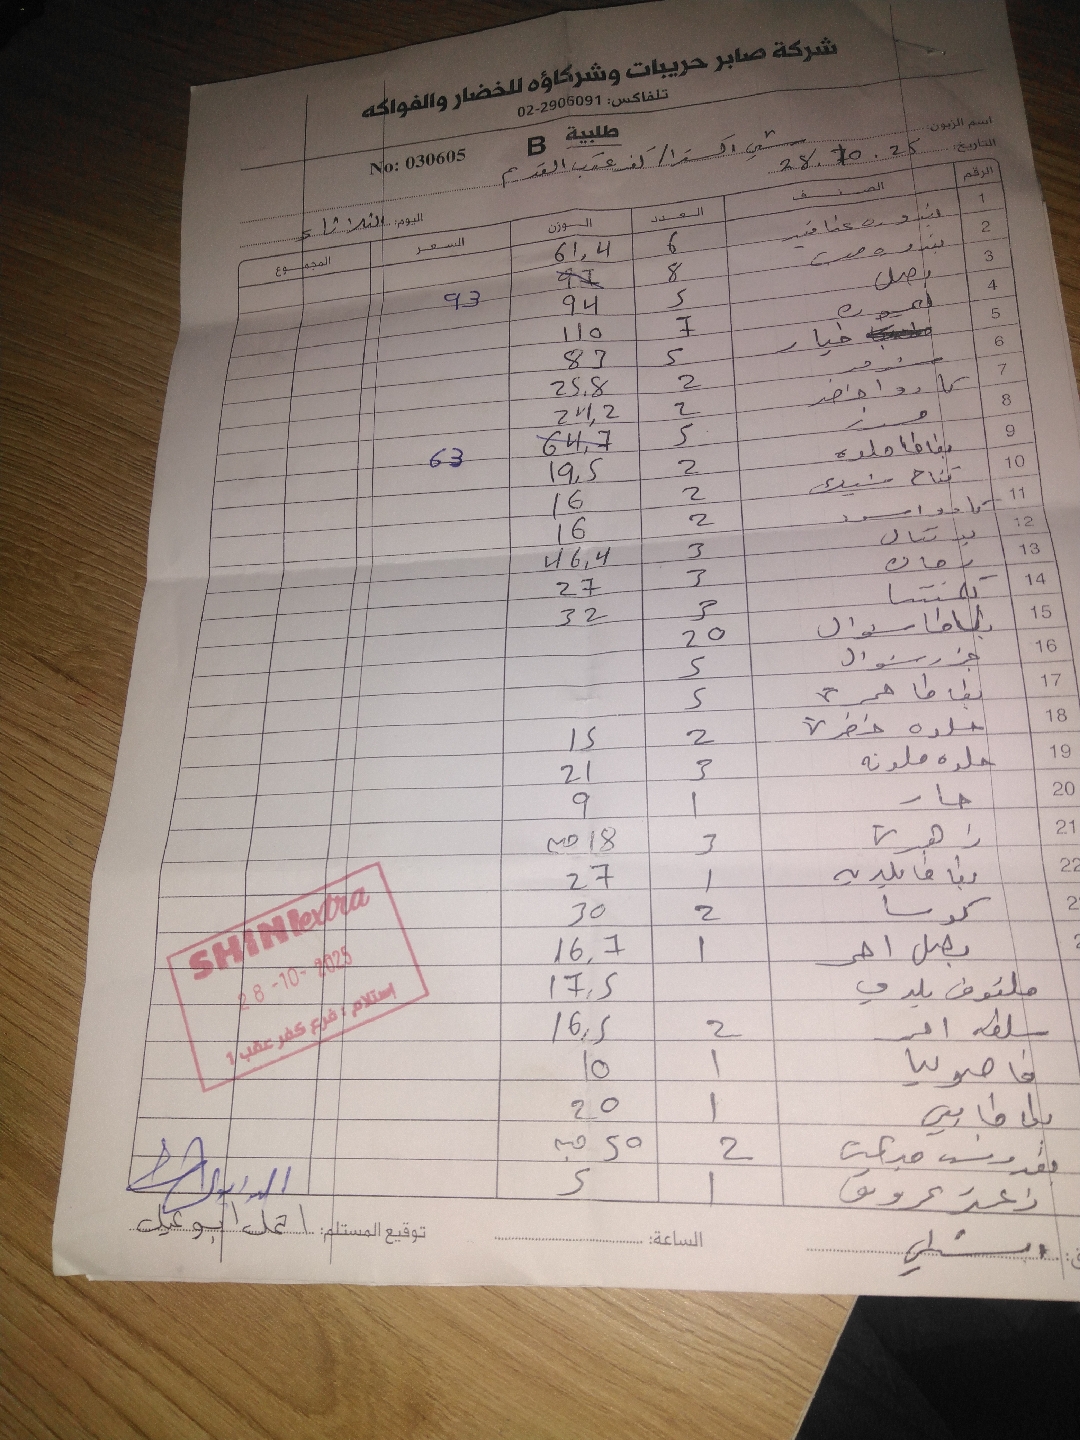 شركة صابر حريبات وشركاؤه للخضار والفواكه
تلفاكس: 02-2906091
طلبية B
No: 030605
اسم الزبون: شني اكسترا / كفر عقب القديم
التاريخ: 28.10.25
اليوم: الثلاثاء
الرقم الصنف العدد الوزن السعر المجموع
1 بندوره عناقيد 6 61,4
2 بندوره حب 8 97 93
3 بصل 5 94
4 7 110
5 خيار 5 83
6 2 25,8
7 كادوا اخضر 2 24,2
8 5 64,7 63
9 بطاطا حلوه 2 19,5
10 تفاح سكري 2 16
11 كادوا اسود 2 16
12 برتقال 3 46,4
13 رمان 3 27
14 كلمنتينا 3 32
15 بطاطا سنوال 20
16 جزر سنوال 5
17 بطاطا حمرة 5
18 حلوه خضرة 2 15
19 حلوه ملونه 3 21
20 حار 1 9
21 زهرة 3 18 حبه
22 بطاطا بلديه 1 27
كوسا 2 30
بصل احمر 1 16,7
ملفوف بلدي 17,5
سلطه احمر 2 16,5
فاصوليا 1 10
بطاطا بيبي 1 20
بقدونس 2 50 حبه
زعتر عروق 1 5
SHINI extra
28-10-2025
إستلام : فرع كفر عقب 1
الساعة:
توقيع المستلم: احمد ابو عيد